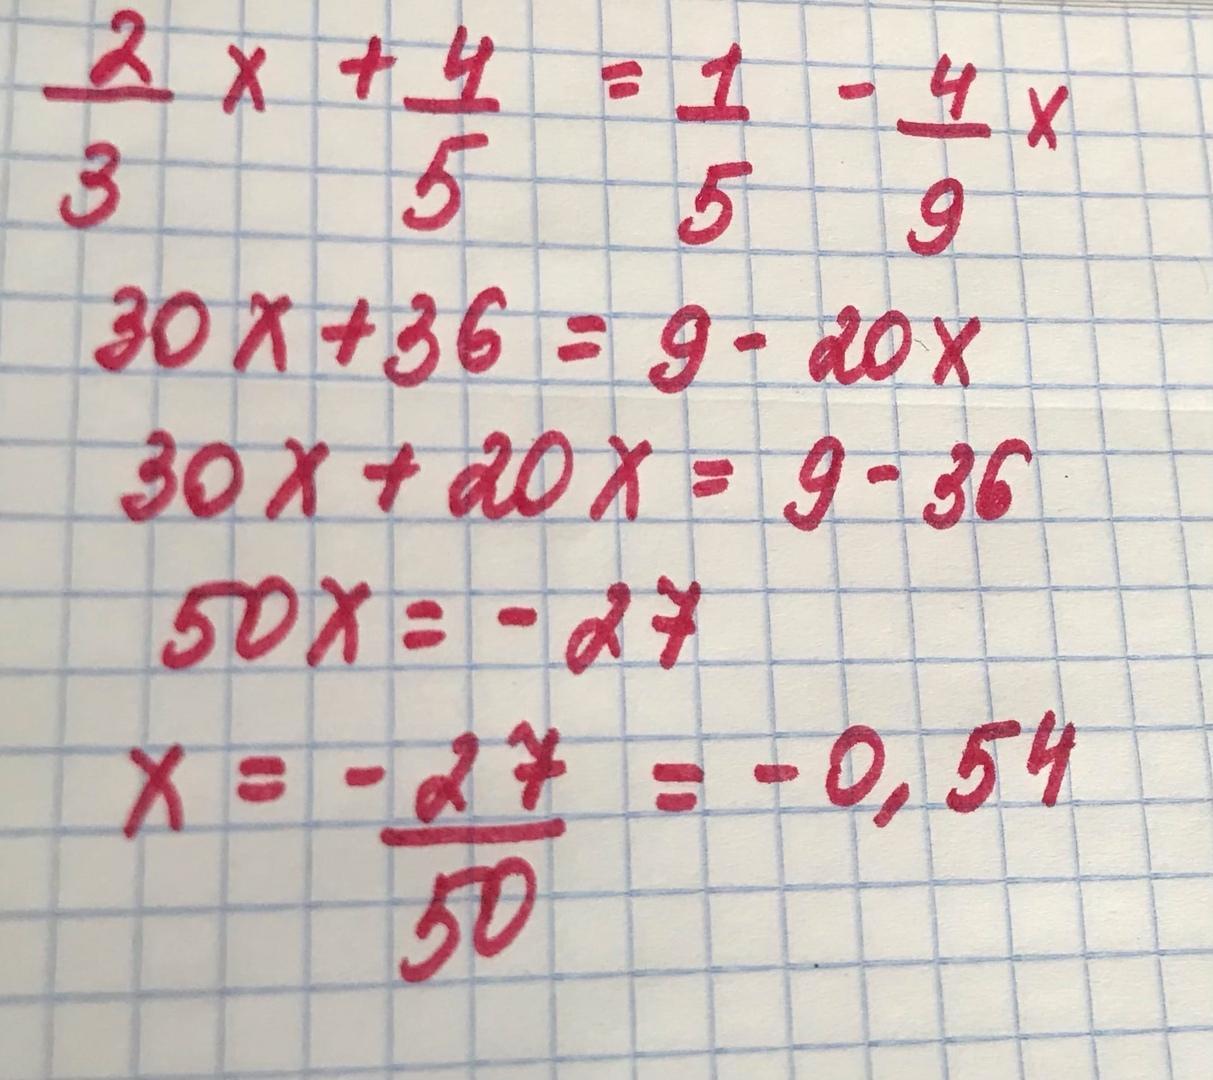 2/3 x + 4/5 = 1/5 - 4/9 x
30x + 36 = 9 - 20x
30x + 20x = 9 - 36
50x = - 27
x = - 27/50 = - 0,54